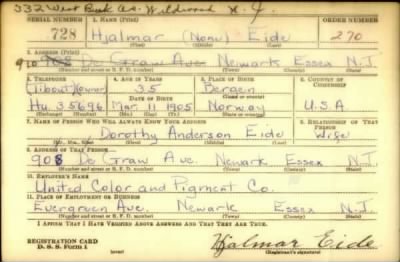 532 West Burk Av. Wildwood N.J.
SERIAL NUMBER 1. NAME (Print) ORDER NUMBER
728 Hjalmar (None) Eide 270
(First) (Middle) (Last)
2. ADDRESS (Print)
910 908 De Graw Ave. Newark Essex N.J.
(Number and street or R. F. D. number) (Town) (County) (State)
3. TELEPHONE 4. AGE IN YEARS 5. PLACE OF BIRTH 6. COUNTRY OF CITIZENSHIP
35 Bergen
DATE OF BIRTH (Town or county)
Hu. 35696 Mar. 11 1905 Norway U.S.A
(Exchange) (Number) (Mo.) (Day) (Yr.) (State or country)
7. NAME OF PERSON WHO WILL ALWAYS KNOW YOUR ADDRESS 8. RELATIONSHIP OF THAT PERSON
Dorothy Anderson Eide Wife
(Mr., Mrs., Miss) (First) (Middle) (Last)
9. ADDRESS OF THAT PERSON
908 De Graw Ave. Newark Essex N.J.
(Number and street or R. F. D. number) (Town) (County) (State)
10. EMPLOYER'S NAME
United Color and Pigment Co.
11. PLACE OF EMPLOYMENT OR BUSINESS
Evergreen Ave. Newark Essex N.J.
(Number and street or R. F. D. number) (Town) (County) (State)
I AFFIRM THAT I HAVE VERIFIED ABOVE ANSWERS AND THAT THEY ARE TRUE.
REGISTRATION CARD
D. S. S. Form 1 (over) Hjalmar Eide
(Registrant's signature)